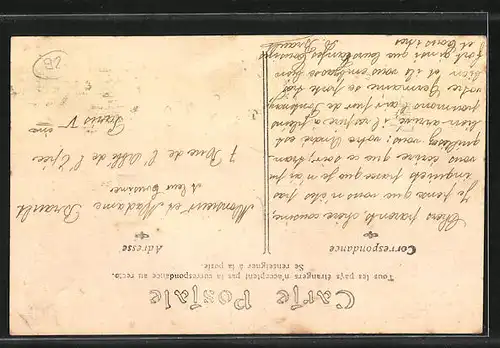 Carte Postale
Tous les pays étrangers n'acceptent pas la correspondance au recto.
Se renseigner à la poste.
Correspondance
Chers parents chère cousine,
Je pense que vous n'êtes pas
inquiets parce que je n'ai pu
vous écrire que ce soir, tran-
quillisez vous; votre André est
bien arrivé; il respire à pleins
poumons l'air pur de
votre Germaine se porte très
bien et il vous embrasse bien
fort ainsi que
et tous
Adresse
Monsieur et Madame Brault
et leur Cousine
7 Rue de l'Abbé de l'Épée
Paris V ème
82